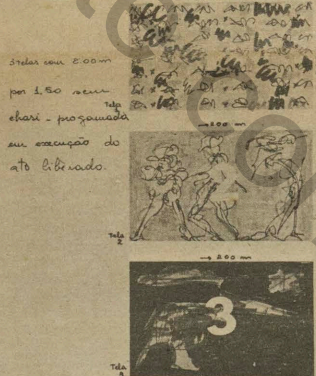 3 telas com 2.00m
por 1,50 sem
chasi - progamada
em execução do
ato liberado.
Tela
→ 200 m
Tela
2
→ 200 m
3
Tela